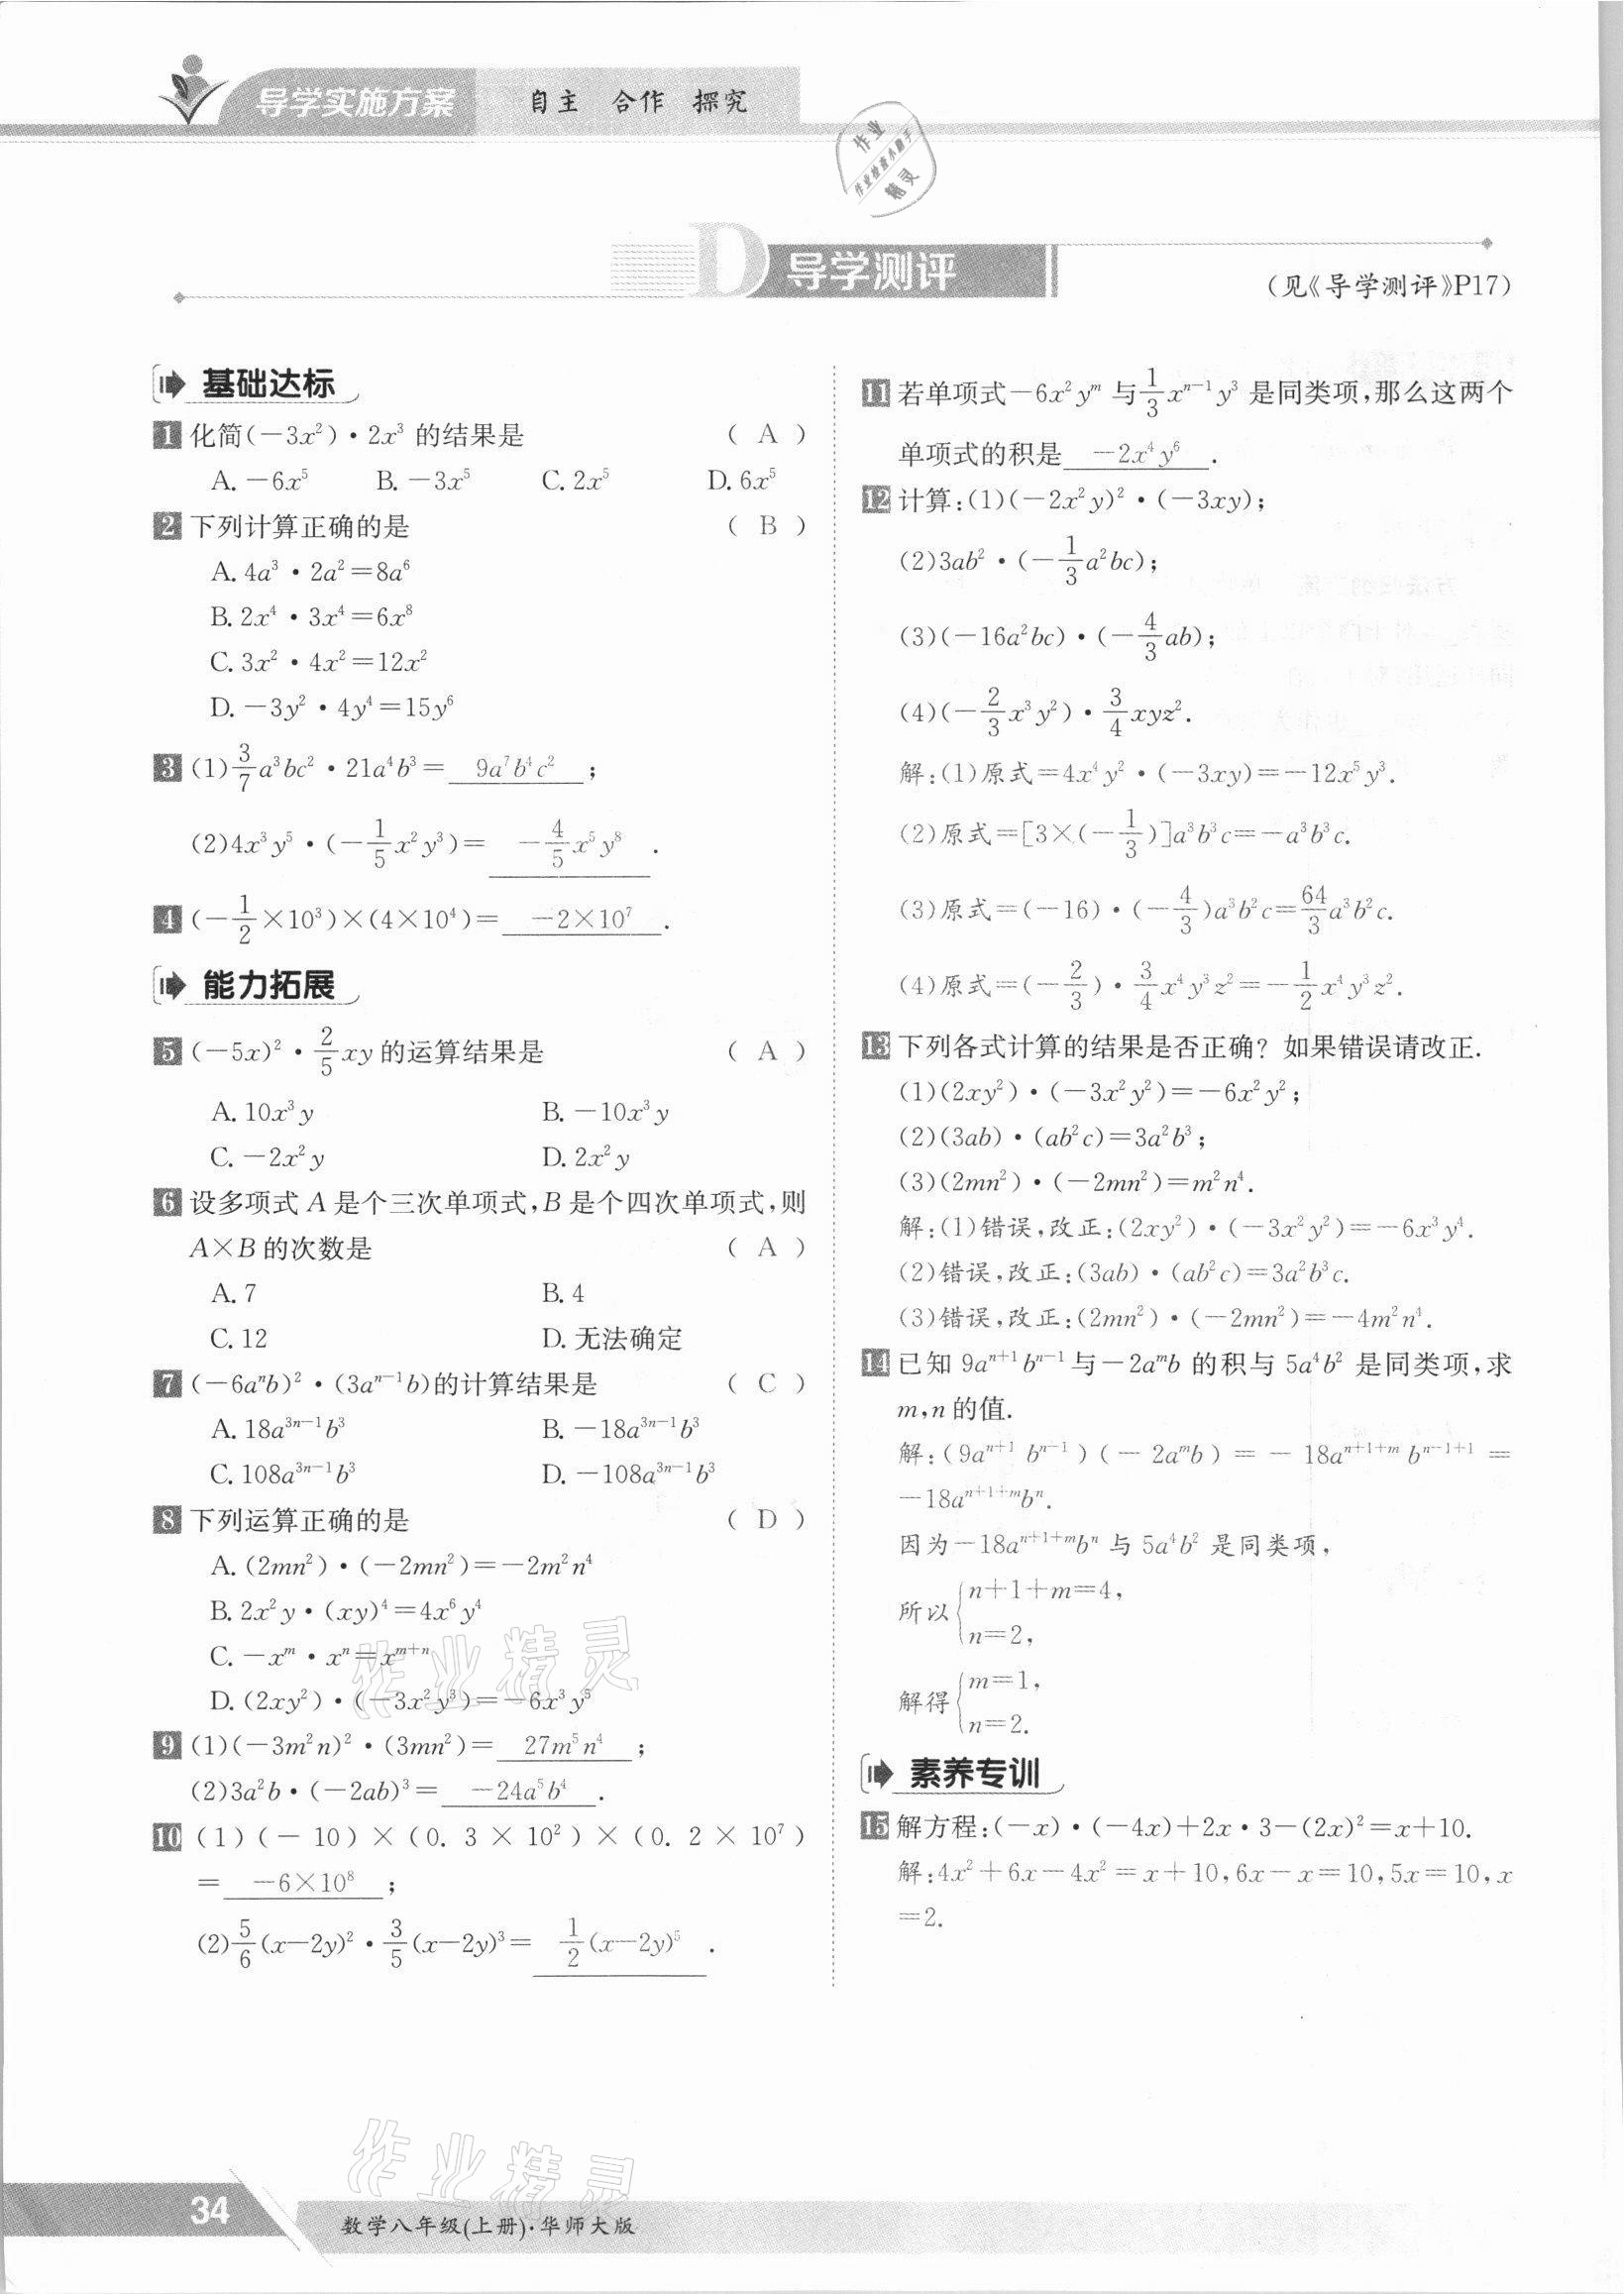 导学实施方案 自主 合作 探究
作业
作业检查小助手
精灵
D 导学测评
(见《导学测评》P17)
基础达标
1 化简(-3x²)·2x³ 的结果是 ( A )
A. -6x⁵ B. -3x⁵ C. 2x⁵ D. 6x⁵
2 下列计算正确的是 ( B )
A. 4a³·2a²=8a⁶
B. 2x⁴·3x⁴=6x⁸
C. 3x²·4x²=12x²
D. -3y²·4y⁴=15y⁶
3 (1) 3/7 a³bc²·21a⁴b³= 9a⁷b⁴c² ;
(2)4x³y⁵·(- 1/5 x²y³)= - 4/5 x⁵y⁸ .
4 (- 1/2 ×10³)×(4×10⁴)= -2×10⁷ .
能力拓展
5 (-5x)²· 2/5 xy 的运算结果是 ( A )
A. 10x³y B. -10x³y
C. -2x²y D. 2x²y
6 设多项式 A 是个三次单项式,B 是个四次单项式,则
A×B 的次数是 ( A )
A. 7 B. 4
C. 12 D. 无法确定
7 (-6aⁿb)²·(3aⁿ⁻¹b)的计算结果是 ( C )
A. 18a³ⁿ⁻¹b³ B. -18a³ⁿ⁻¹b³
C. 108a³ⁿ⁻¹b³ D. -108a³ⁿ⁻¹b³
8 下列运算正确的是 ( D )
A. (2mn²)·(-2mn²)=-2m²n⁴
B. 2x²y·(xy)⁴=4x⁶y⁴
C. -xᵐ·xⁿ=xᵐ⁺ⁿ
D. (2xy²)·(-3x²y³)=-6x³y⁵
作业精灵
9 (1)(-3m²n)²·(3mn²)= 27m⁵n⁴ ;
(2)3a²b·(-2ab)³= -24a⁵b⁴ .
10 (1)(-10)×(0.3×10²)×(0.2×10⁷)
= -6×10⁸ ;
(2) 5/6 (x-2y)²· 3/5 (x-2y)³= 1/2 (x-2y)⁵ .
11 若单项式-6x²yᵐ 与 1/3 xⁿ⁻¹y³ 是同类项,那么这两个
单项式的积是 -2x⁴y⁶ .
12 计算:(1)(-2x²y)²·(-3xy);
(2)3ab²·(- 1/3 a²bc);
(3)(-16a²bc)·(- 4/3 ab);
(4)(- 2/3 x³y²)· 3/4 xyz².
解:(1)原式=4x⁴y²·(-3xy)=-12x⁵y³.
(2)原式=[3×(- 1/3 )]a³b³c=-a³b³c.
(3)原式=(-16)·(- 4/3 )a³b²c= 64/3 a³b²c.
(4)原式=(- 2/3 )· 3/4 x⁴y³z²=- 1/2 x⁴y³z².
13 下列各式计算的结果是否正确? 如果错误请改正.
(1)(2xy²)·(-3x²y²)=-6x²y²;
(2)(3ab)·(ab²c)=3a²b³;
(3)(2mn²)·(-2mn²)=m²n⁴.
解:(1)错误,改正:(2xy²)·(-3x²y²)=-6x³y⁴.
(2)错误,改正:(3ab)·(ab²c)=3a²b³c.
(3)错误,改正:(2mn²)·(-2mn²)=-4m²n⁴.
14 已知 9aⁿ⁺¹bⁿ⁻¹与-2aᵐb 的积与 5a⁴b² 是同类项,求
m,n 的值.
解:(9aⁿ⁺¹bⁿ⁻¹)(-2aᵐb)=-18aⁿ⁺¹⁺ᵐbⁿ⁻¹⁺¹=
-18aⁿ⁺¹⁺ᵐbⁿ.
因为-18aⁿ⁺¹⁺ᵐbⁿ 与 5a⁴b² 是同类项,
所以{n+1+m=4,
n=2,
解得{m=1,
n=2.
素养专训
15 解方程:(-x)·(-4x)+2x·3-(2x)²=x+10.
解:4x²+6x-4x²=x+10,6x-x=10,5x=10,x
=2.
作业精灵
34
数学八年级(上册)·华师大版